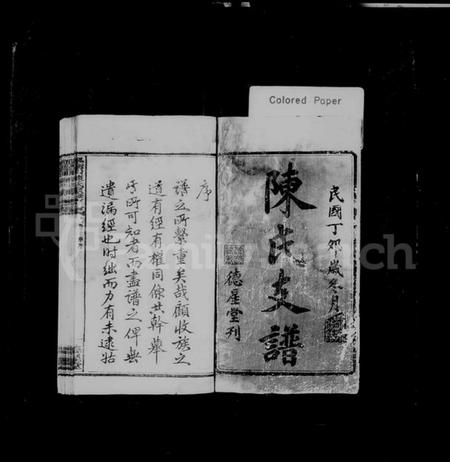 Colored Paper
民國丁卯歲冬月
陳氏支譜
德星堂刊
序
譜之所繫重矣哉顧收族之
道有經有權同條共幹舉
吾所可知者而盡譜之俾無
遺漏經也時絀而力有未逮姑